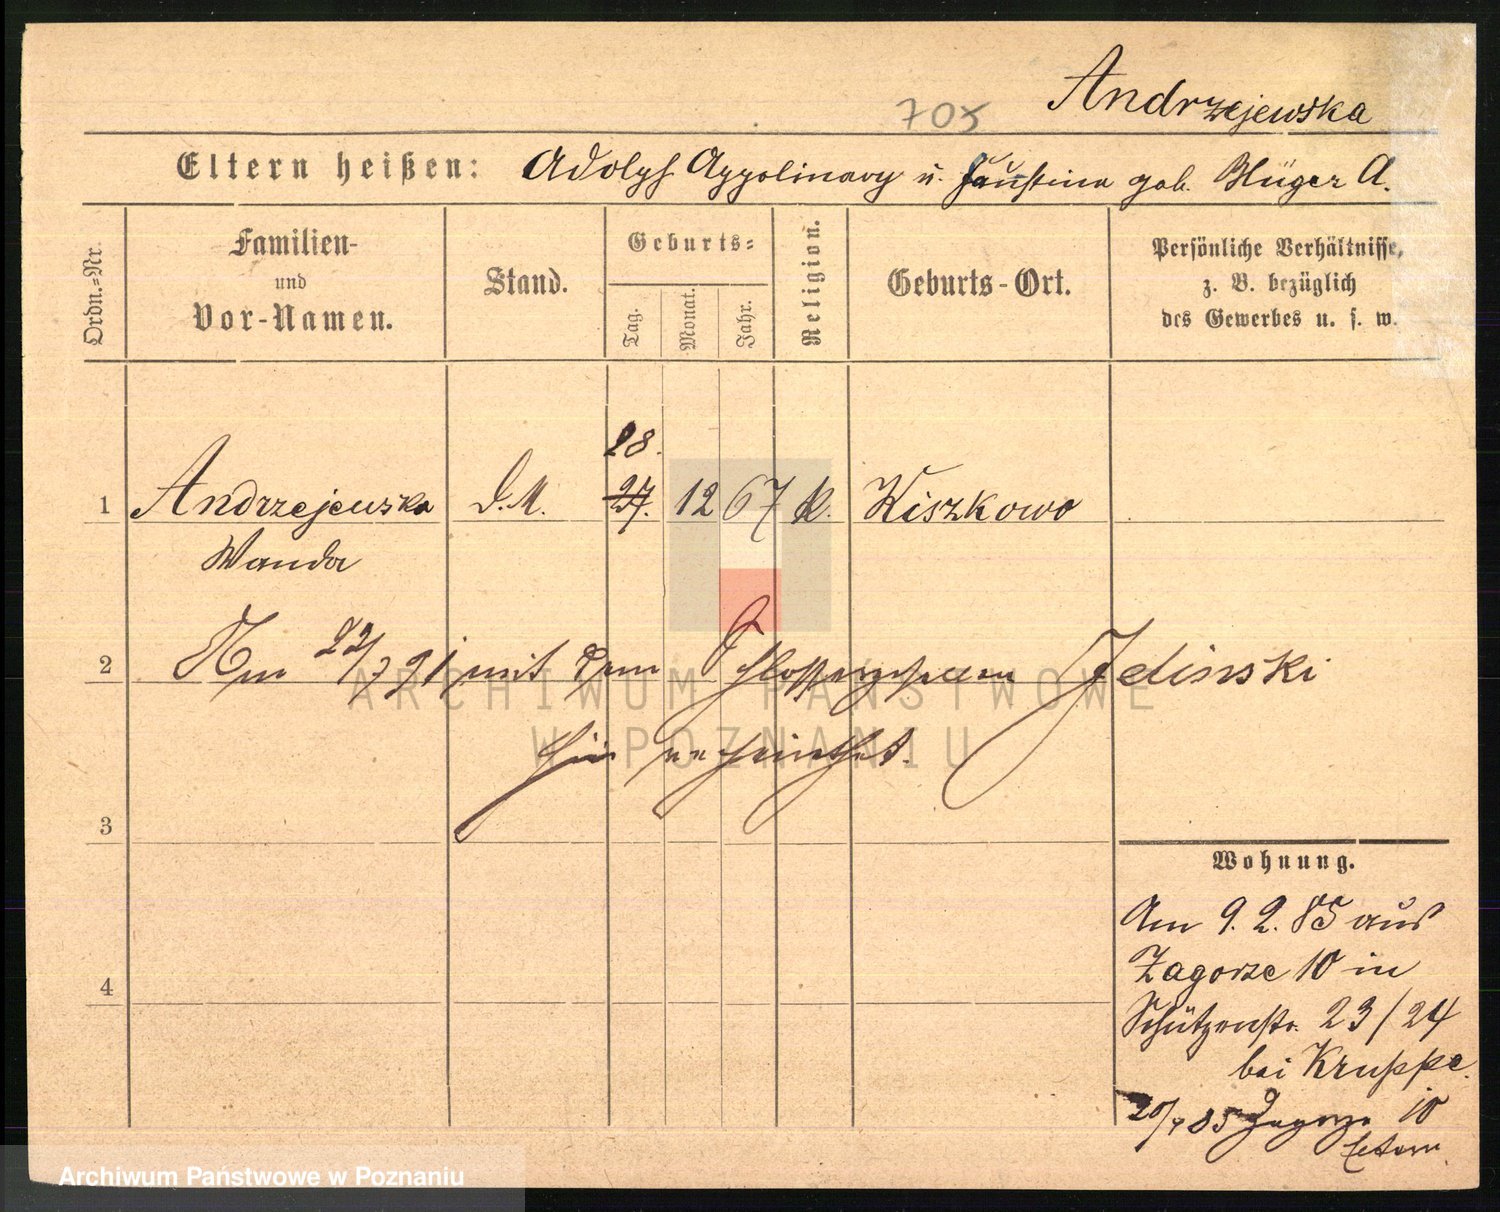 Andrzejewska
705
Eltern heißen: Adolph Appolinary u. Faustina geb. Klüger A.
Ordn.-Nr.
Familien-
und
Vor-Namen.
Stand.
Geburts-
Tag.
Monat.
Jahr.
Religion.
Geburts-Ort.
Persönliche Verhältnisse,
z. B. bezüglich
des Gewerbes u. s. w.
28.
1 Andrzejewska D.M. 27. 12 67 k. Kiszkowo
Wanda
2 Am 22/7 91 mit dem Schlossergesellen Jelinski
hier verheirathet.
3
Wohnung.
Am 9. 2. 85 aus
Zagorze 10 in
4
Schützenstr. 23/24
bei Kruppe.
20/4 85 Zagorze 10
Eltern
ARCHIWUM PAŃSTWOWE
W POZNANIU
Archiwum Państwowe w Poznaniu